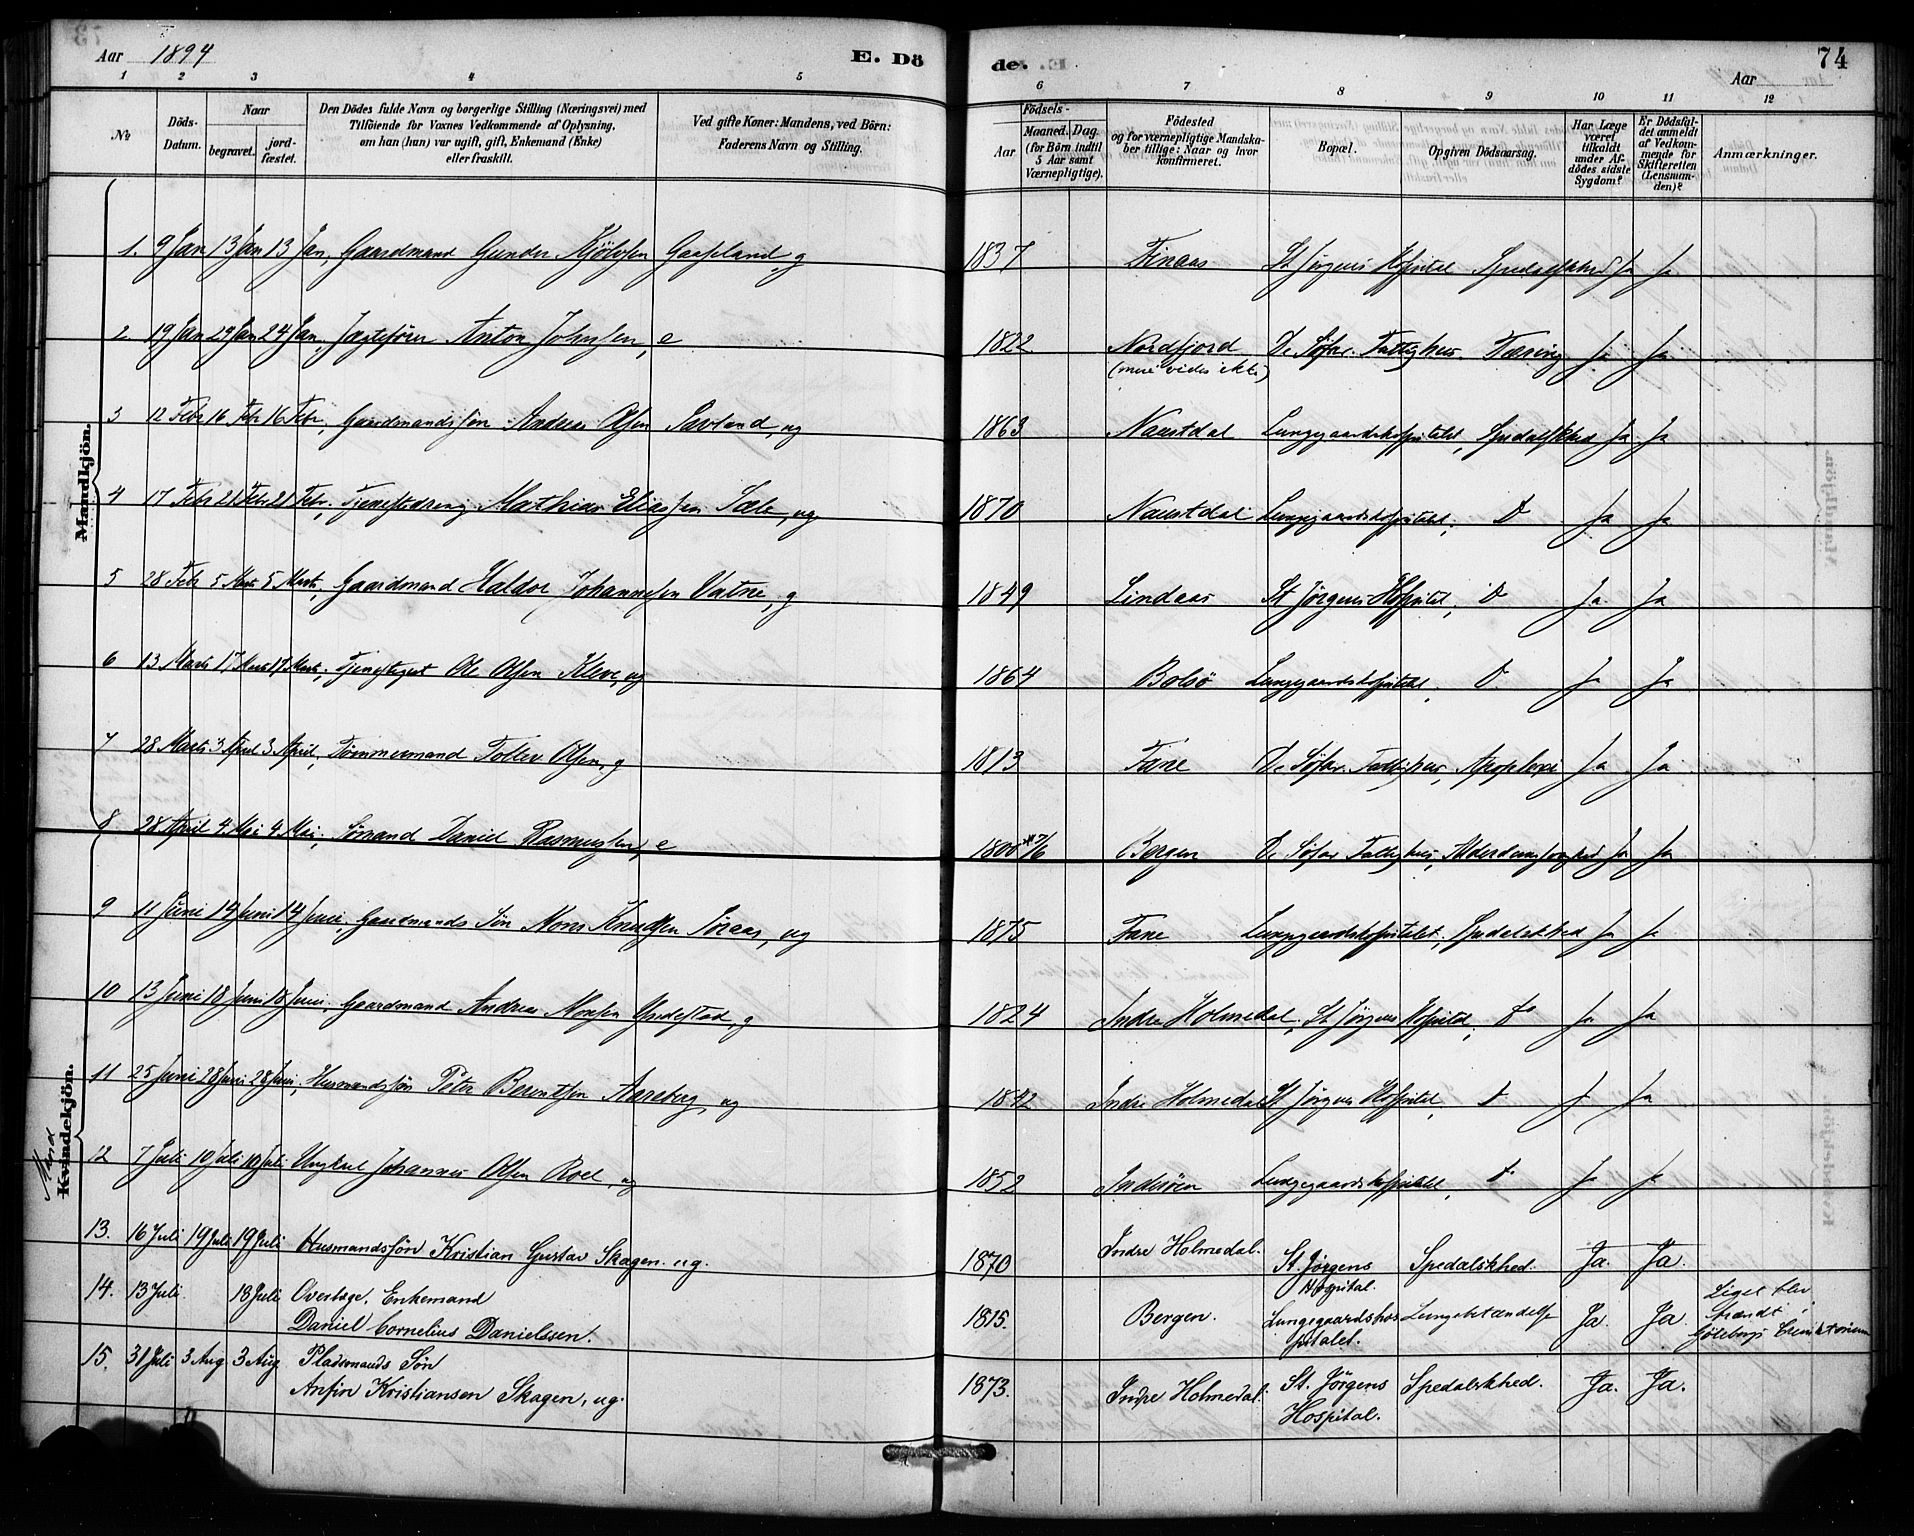 Aar 1894
E. Dö
de.
74
Aar
1 2 3 4 5 6 7 8 9 10 11 12
№
Döds-Datum.
Naar
begravet.
jord-fæstet.
Den Dödes fulde Navn og borgerlige Stilling (Næringsvei) med
Tilföiende for Voxnes Vedkommende af Oplysning,
om han (hun) var ugift, gift, Enkemand (Enke)
eller fraskilt.
Ved gifte Koner: Mandens, ved Börn:
Faderens Navn og Stilling.
Födsels-
Aar
Maaned. Dag.
(for Börn indtil
5 Aar samt
Værnepligtige).
Födested
og for værnepligtige Mandska-
ber tillige: Naar og hvor
konfirmeret.
Bopæl.
Opgiven Dödsaarsag.
Har Læge
været
tilkaldt
under Af-
dödes sidste
Sygdom?
Er Dödsfal-
det anmeldt
af Vedkom-
mende for
Skifteretten
(Lensman-
den)?
Anmærkninger.
Mandkjön.
Mand
Kvindekjön.
1. 9 Jan 13 Jan 13 Jan, Gaardmand Gunder Kjölvsen Gaaseland, g 1837 Finaas St Jørgens Hospital Spedalskhed Ja Ja
2 19 Jan 24 Jan 24 Jan, Jægtefører Anton Johnsen, e 1822 Nordfjord De Søfar. Fattighus. Tæring Ja Ja
(mere vides ikke)
3 12 Febr 16 Febr 16 Febr, Gaardmandssøn Andreas Olsen Savland, ug 1863 Naustdal Lungegaardshospitalet, Spedalskhed Ja Ja
4 17 Febr 21 Febr 21 Febr, Tjenestedreng Mathias Eliassen Sæle, ug 1870 Naustdal Lungegaardshospitalet, D Ja Ja
5 28 Febr 5 Marts 5 Marts, Gaardmand Haldor Johannesen Vatne, g 1849 Lindaas St Jørgens Hospital, D Ja Ja
6 13 Marts 17 Marts 17 Marts, Tjenestegut Ole Olsen Kleve, ug 1864 Bolsö Lungegaardshospitalet, D Ja Ja
7 28 Marts 3 April 3 April, Tømmermand Tollev Olsen, g 1813 Fane De Søfar. Fattighus, Apoplexi Ja Ja
8 28 April 4 Mai 4 Mai, Sømand Daniel Rasmussen, e 1800 7/6 Bergen De Søfar Fattighus, Alderdomssvaghed Ja Ja
9 11 Juni 14 Juni 14 Juni, Gaardmands Søn Mons Knudsen Søraas, ug 1875 Fane Lungegaardshospitalet, Spedalskhed Ja Ja
10 13 Juni 18 Juni 18 Juni, Gaardmand Andreas Monsen Yndestad, g 1824 Indre Holmedal, St Jørgens Hospital, D Ja Ja
11 25 Juni 28 Juni 28 Juni, Husmandssøn Peter Berentsen Aareberg, ug 1842 Indre Holmedal St Jørgens Hospital, D Ja Ja
12 7 Juli 10 Juli 10 Juli Ungkarl Johannes Olsen Roel, ug 1852 Inderöen Lungegaardshospitalet, D Ja Ja
13. 16 Juli 19 Juli 19 Juli Husmandssøn Kristian Gustav Skagen. ug. 1870 Indre Holmedal. St. Jørgens Spedalskhed. Ja. Ja.
Hospital.
14. 13 Juli. 18 Juli Overlæge, Enkemand
Daniel Cornelius Danielssen. 1815. Bergen. Lungegaardshos Lungebetændelse Ja. Ja. Liget blev
pitalet. brændt i
Göteborgs Crematorium
15. 31 Juli 3 Aug 3 Aug Pladsmands Søn
Anfin Kristiansen Skagen, ug. 1873. Indre Holmedal. St. Jørgens Spedalskhed. Ja. Ja.
Hospital.